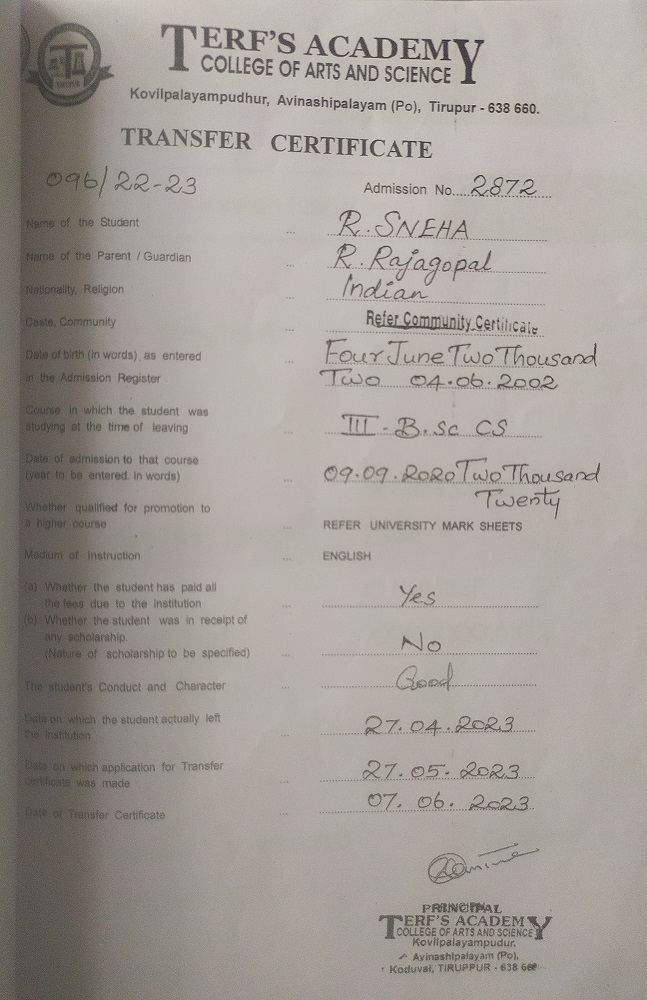 TERF'S ACADEMY
COLLEGE OF ARTS AND SCIENCE
TIRUPUR
Kovilpalayampudhur, Avinashipalayam (Po), Tirupur - 638 660.
TRANSFER CERTIFICATE
096/22-23
Admission No....2872
Name of the Student ... R. SNEHA
Name of the Parent / Guardian ... R. Rajagopal
Nationality, Religion ... Indian
Caste, Community ... Refer Community Certificate
Date of birth (in words) as entered ... Four June Two Thousand
in the Admission Register Two 04.06.2002
Course in which the student was
studying at the time of leaving ... III - B.sc CS
Date of admission to that course
(year to be entered. in words) ... 09.09.2020 Two Thousand
Twenty
Whether qualified for promotion to
a higher course ... REFER UNIVERSITY MARK SHEETS
Medium of Instruction ... ENGLISH
(a) Whether the student has paid all
the fees due to the Institution ... Yes
(b) Whether the student was in receipt of
any scholarship.
(Nature of scholarship to be specified) ... No
The student's Conduct and Character ... Good
Date on which the student actually left
the Institution ... 27.04.2023
Date on which application for Transfer
certificate was made ... 27.05.2023
Date of Transfer Certificate ... 07.06.2023
PRINCIPAL
TERF'S ACADEMY
COLLEGE OF ARTS AND SCIENCE
Kovilpalayampudur.
Avinashipalayam (Po),
Koduvai, TIRUPPUR - 638 660